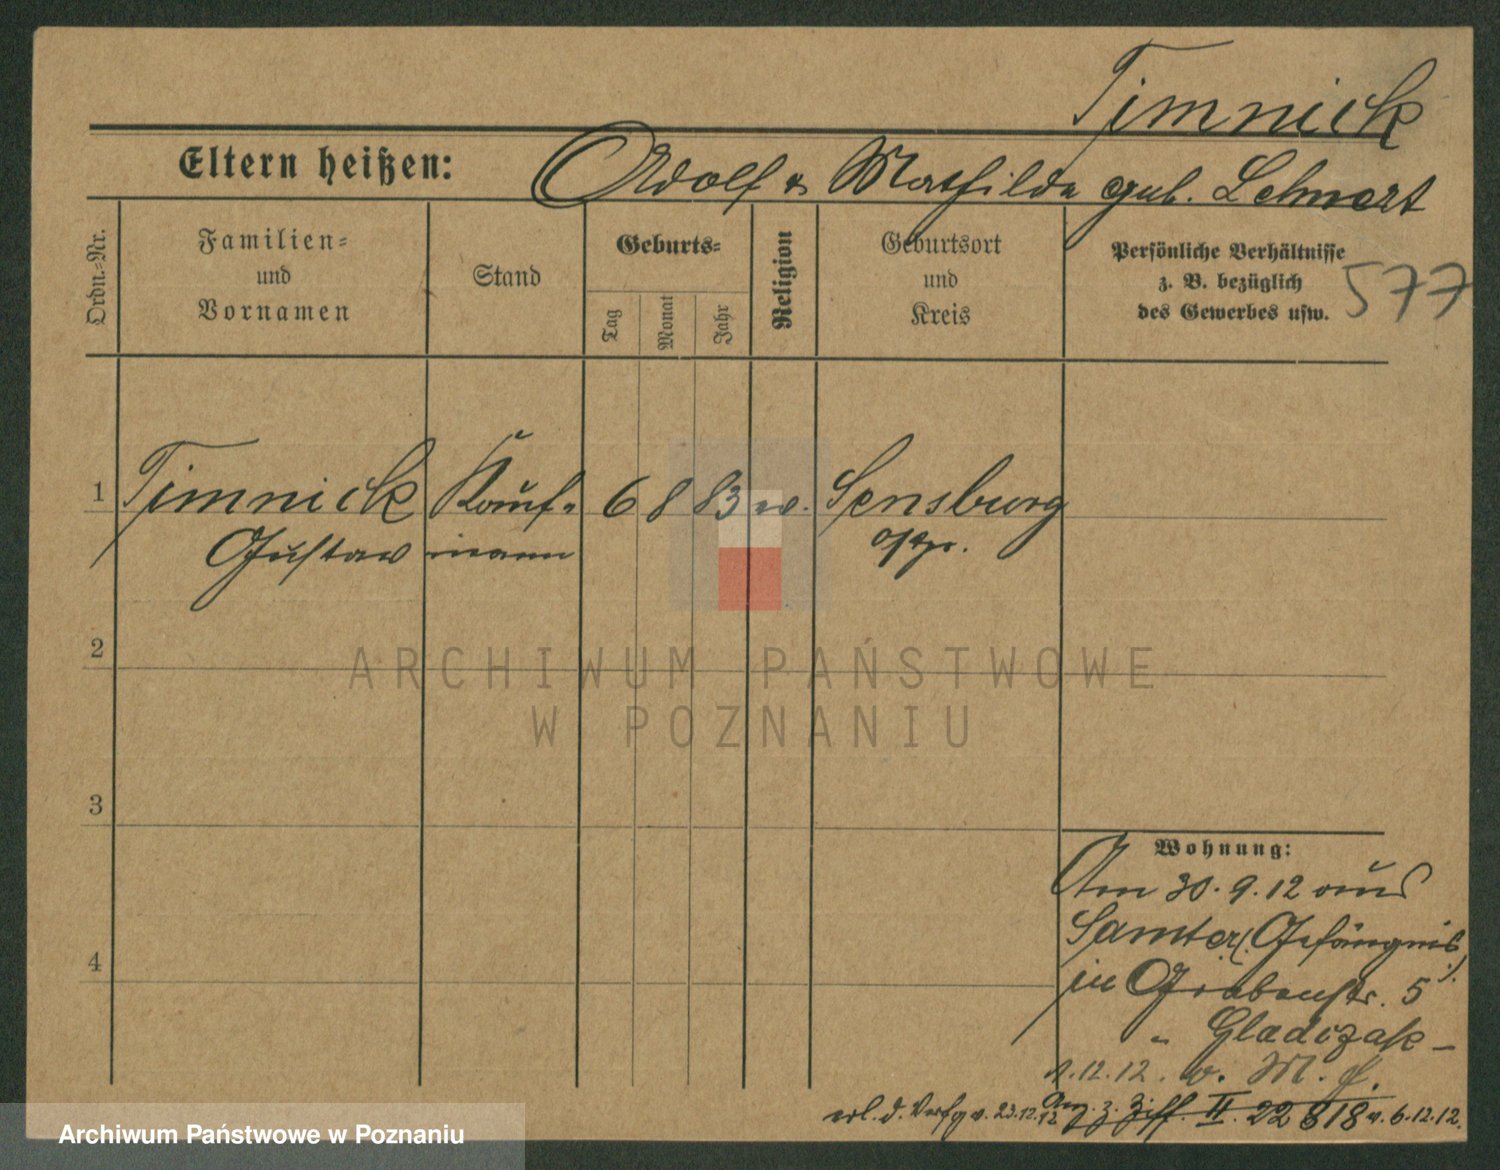 Timnick
Eltern heißen: Adolf u. Mathilde geb. Lehnert
577
Ordn.-Nr.
Familien-
und
Vornamen
Stand
Geburts-
Tag
Monat
Jahr
Religion
Geburtsort
und
Kreis
Persönliche Verhältnisse
z. B. bezüglich
des Gewerbes usw.
1 Timnick Kauf- 6 8 83 ev. Sensburg
Gustav mann Ostpr.
2
ARCHIWUM PAŃSTWOWE
W POZNANIU
3
Wohnung:
Am 30.9.12 aus
Samter (Gefängnis)
4
in Grabenstr. 5
" Gladizak –
1.12.12. v. M. f.
erl. d. Verfg v. 23.12.12 Anz. z. Ziff. II. 22818 v. 6.12.12.
Archiwum Państwowe w Poznaniu